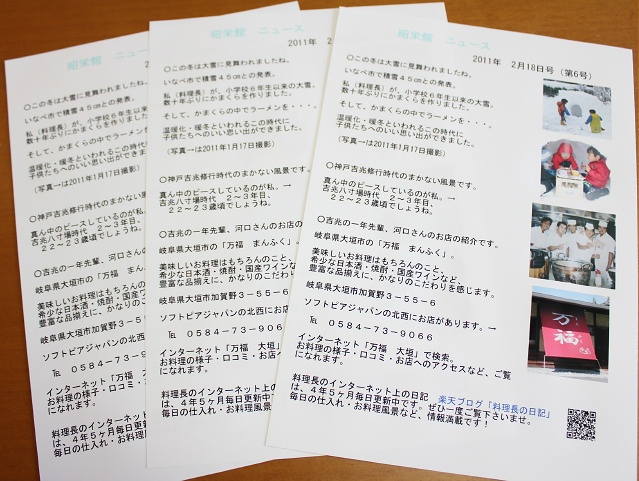 昭栄館 ニュース
2011年 2月18日号 (第6号)
○この冬は大雪に見舞われましたね。
いなべ市で積雪45cmとの発表。
私(料理長)が、小学校6年生以来の大雪。
数十年ぶりにかまくらを作りました。
そして、かまくらの中でラーメンを・・・。
温暖化・暖冬といわれるこの時代に
子供たちへのいい思い出ができました。
(写真→は2011年1月17日撮影)
○神戸吉兆修行時代のまかない風景です。
真ん中のピースしているのが私。→
吉兆八寸場時代 2~3年目、
22~23歳頃でしょうね。
○吉兆の一年先輩、河口さんのお店の紹介です。
岐阜県大垣市の「万福 まんふく」。
美味しいお料理はもちろんのこと、
希少な日本酒・焼酎・国産ワインなど、
豊富な品揃えに、かなりのこだわりを感じます。
岐阜県大垣市加賀野3-55-6
ソフトピアジャパンの北西にお店があります。→
℡ 0584-73-9066
インターネット「万福 大垣」で検索。
お料理の様子・口コミ・お店へのアクセスなど、ご覧
になれます。
料理長のインターネット上の日記 楽天ブログ「料理長の日記」
は、4年5ヶ月毎日更新中です。ぜひ一度ご覧下さいませ。
毎日の仕入れ・お料理風景など、情報満載です!
万福